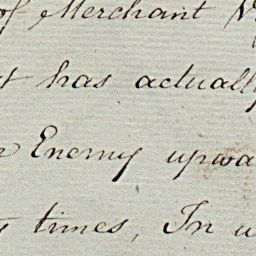 of Merchant
has actually
Enemy upwa
times, In w